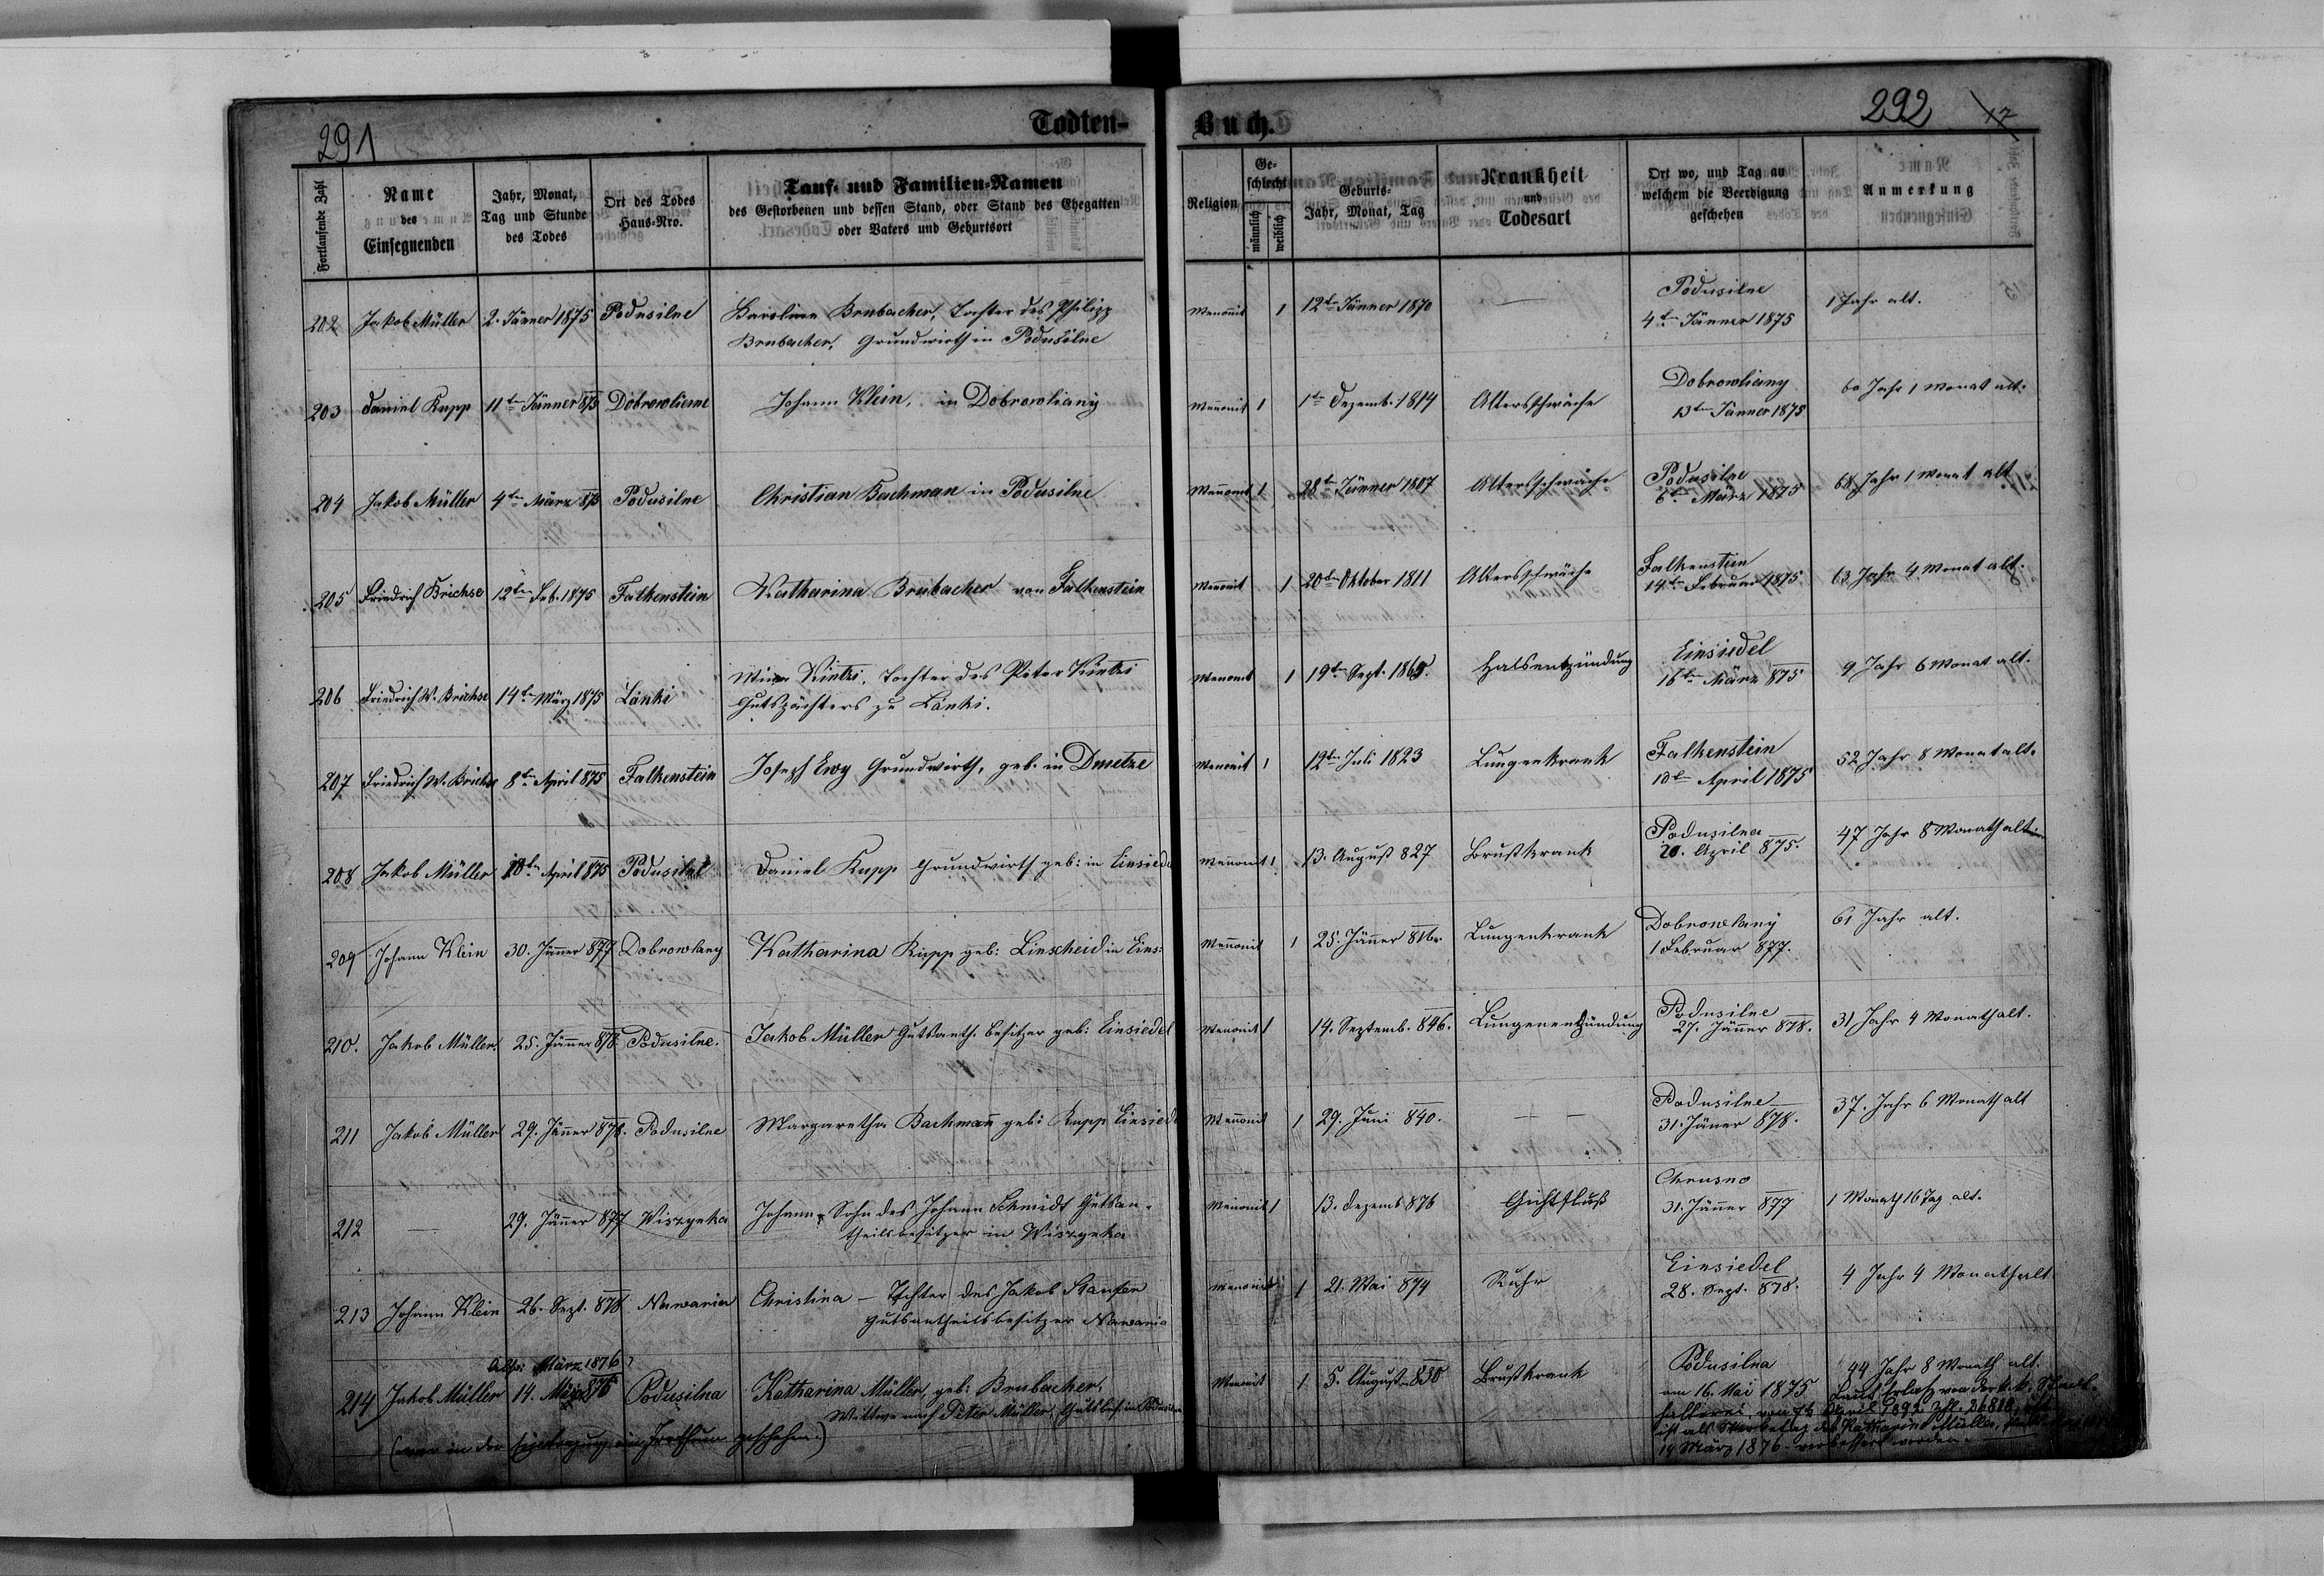 291
Todten-
Buch.
292
17
Fortlaufende Zahl
Name
des
Einsegnenden
Jahr, Monat,
Tag und Stunde
des Todes
Ort des Todes
Haus-Nro.
Tauf- und Familien-Namen
des Gestorbenen und dessen Stand, oder Stand des Ehegatten
oder Vaters und Geburtsort
Religion
Ge-
schlecht
männlich
weiblich
Geburts-
Jahr, Monat, Tag
Krankheit
und
Todesart
Ort wo, und Tag an
welchem die Beerdigung
geschehen
Anmerkung
202 Jakob Müller 2. Jänner 1875 Podusilne Karoline Brubacher, Tochter des Philipp
Brubacher, Grundwirth in Podusilne
Menonit 1 12ten Jänner 1870 — Podusilne
4ten Jänner 1875
1 Jahr alt.
203 Daniel Rupp 11ten Jänner 875 Dobrowliene Johann Klein, in Dobrowliany
Menonit 1 1ten Dezemb. 1814 Altersschwäche Dobrowliany
13ten Jänner 1875
60 Jahr 1 Monat alt.
204 Jakob Müller 4ten März 875 Podusilne Christian Bachman in Podusilne
Menonit 1 28ten Jänner 1807 Altersschwäche Podusilne
6ten März 1875
68 Jahr 1 Monat alt
205 Friedrich Brichse 12ten Feb. 1875 Falkenstein Katharina Brubacher von Falkenstein
Menonit 1 20ten Oktober 1811 Altersschwäche Falkenstein
14ten Februar 1875
63 Jahr 4 Monat alt.
206 Friedrich W. Brichse 14ten März 1875 Länki Mina Kintzi, Tochter des Peter Kintzi
Gutspächters zu Länki.
Menonit 1 19ten Sept. 1865. Halsentzündung Einsiedel
16ten März 875
9 Jahr 6 Monat alt.
207 Friedrich W. Brichse 8ten April 875 Falkenstein Joseph Ewy Grundwirth, geb. in Dmetze
Menonit 1 12ten Juli 1823 Lungenkrank Falkenstein
10ten April 1875
52 Jahr 8 Monat alt.
208 Jakob Müller 18ten April 875 Podusilne Daniel Rupp Grundwirth geb: in Einsiedel
Menonit 1 13. August 827 Brustkrank Podusilna
20. April 875.
47 Jahr 8 Monath alt.
209 Johann Klein 30. Jänner 877 Dobrowlany Katharina Rupp geb: Linscheid in Eins:
Menonit 1 25. Jänner 816. Lungenkrank Dobrowlany
1 Februar 877.
61 Jahr alt.
210. Jakob Müller 25. Jänner 878. Podusilne. Jakob Müller Gutsanth. Besitzer geb: Einsiedel
Menonit 1 14. Septemb. 846. Lungenentzündung Podusilne
27. Jänner 878.
31 Jahr 4 Monath alt.
211 Jakob Müller 29. Jänner 878. Podusilne Margaretha Bachman geb: Rupp Einsiedel
Menonit 1 29. Juni 840. — — Podusilne
31. Jäner 878.
37. Jahr 6 Monath alt
212 — 29. Jänner 877 Wiszynka Johann, Sohn des Johann Schmidt Gutsan-
theilsbesitzer in Wiszynka
Menonit 1 13. Dezemb 876 Gichtfluß Chrusno
31. Jänner 877
1 Monath 16 Tag alt.
213 Johann Klein 26. Sept. 878 Nawaria Christina — Tochter des Jakob Stauffer
Gutsantheilsbesitzer Nawaria
Menonit 1 21. Mai 874 Ruhr Einsiedel
28. Sept. 878.
4 Jahr 4 Monath alt
Also: März 1876
214 Jakob Müller 14. 876 Podusilna Katharina Müller, geb: Brubacher,
Wittwe nach Peter Müller, Gutsbes. in Podusilna
(war in der Eintragung ein Irrthum geschehen.)
Menonit 1 5. August 830 Brustkrank Podusilna
am 16. Mai 1875
44 Jahr 8 Monath alt.
Laut Erlaß von der k. k. Statt-
halterei von 7t April 1892 Zhl. 26818,
ist als Sterbetag der Katharina Müller,
14 März 1876 verbessert worden.